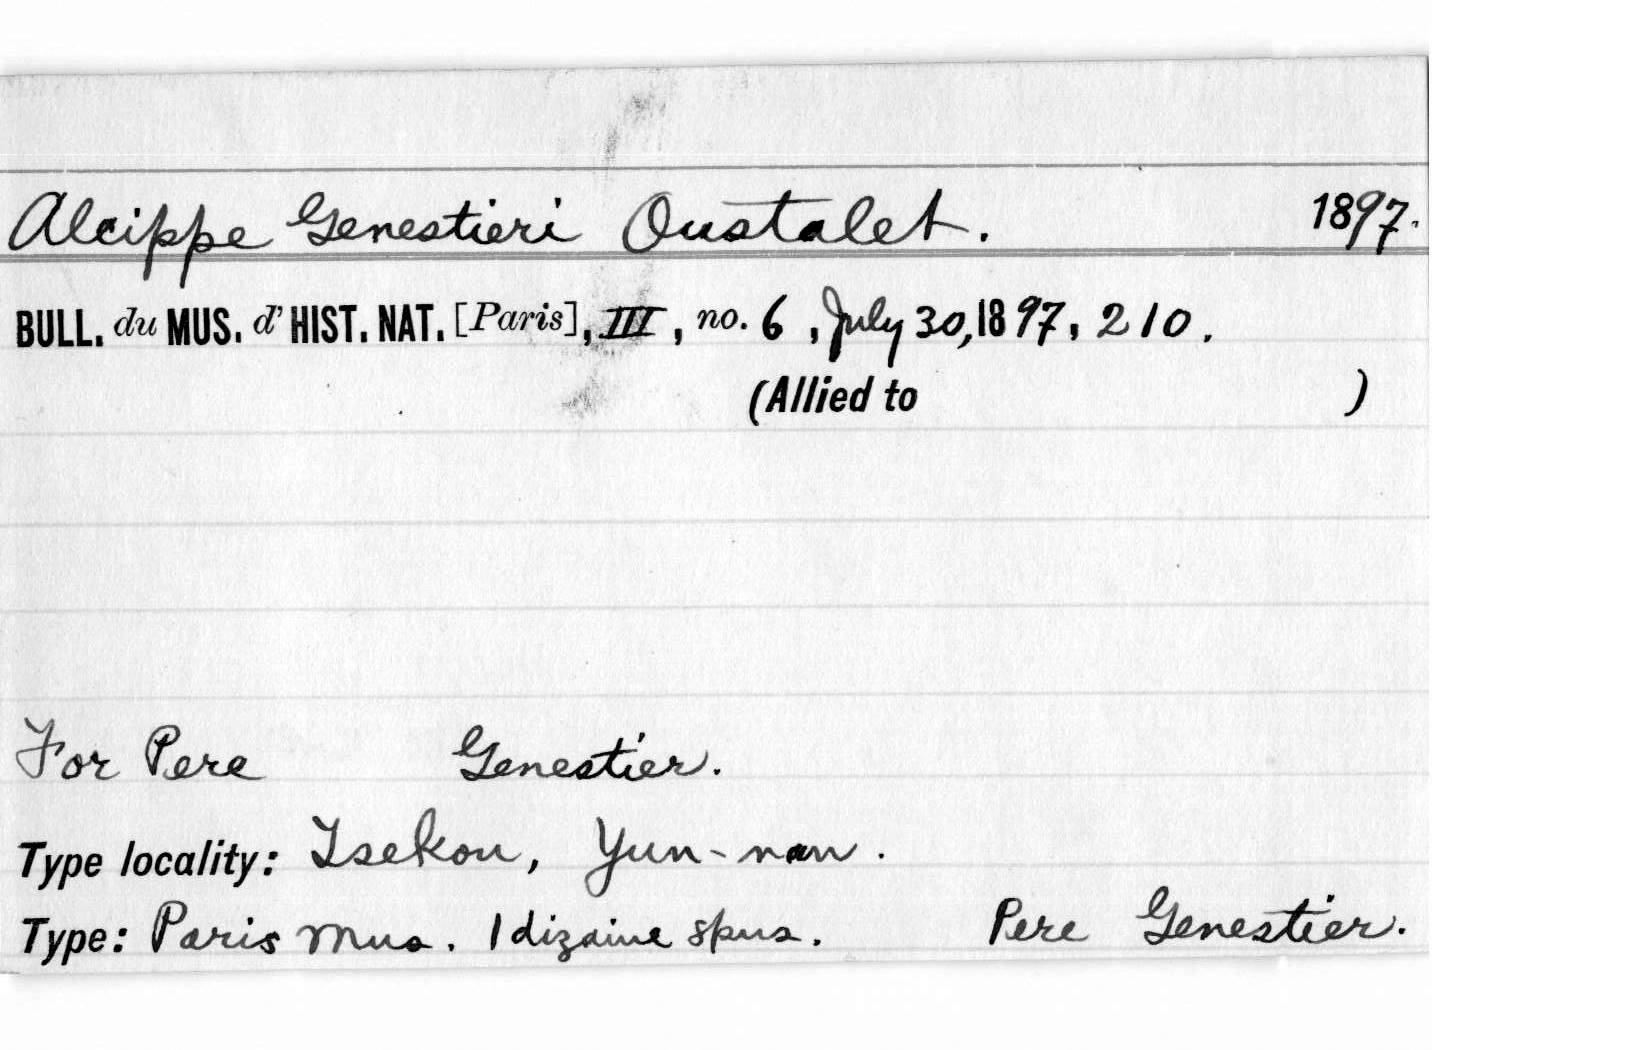 Alcippe Genestieri Oustalet. 1897.
BULL. du MUS. d' HIST. NAT. [Paris], III, no. 6, July 30, 1897, 210.
(Allied to )
For Pere Genestier.
Type locality: Tsekou, Yun-nan.
Type: Paris Mus. 1 dizaine spns. Pere Genestier.